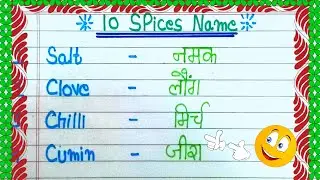 10 Spices Name
Salt - नमक
Clove - लौंग
Chilli - मिर्च
Cumin - जीरा